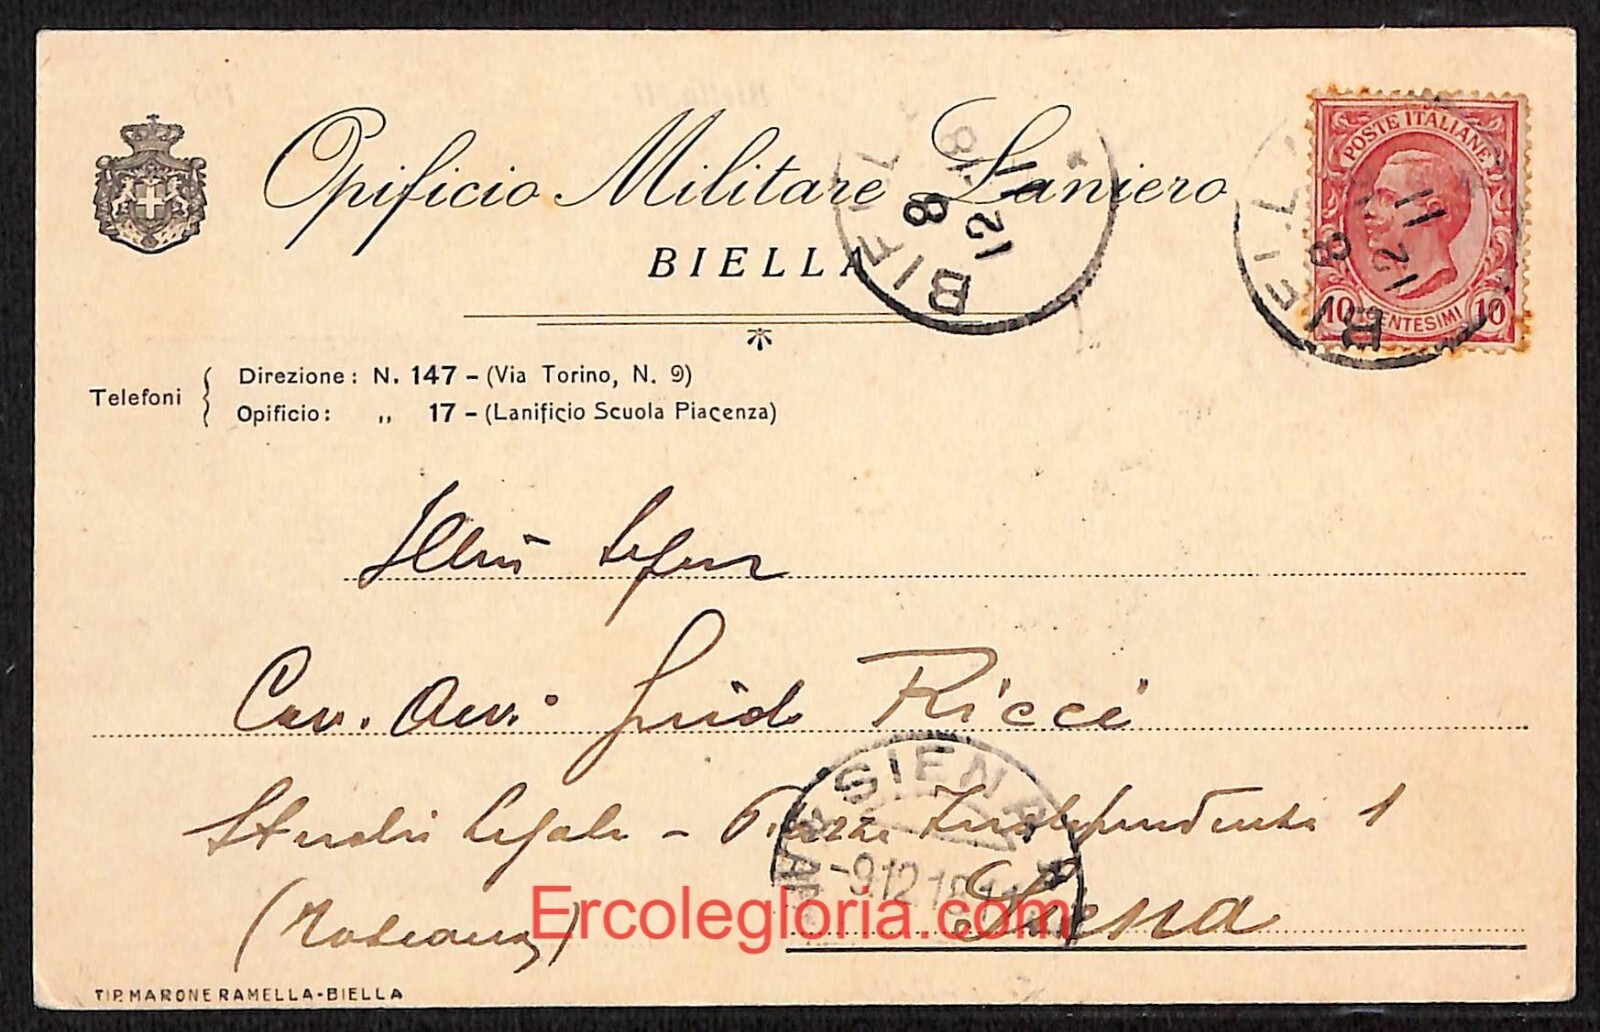 Opificio Militare Laniero
BIELLA
POSTE ITALIANE
10 CENTESIMI 10
BIELLA
8
12 11
18
BIELLA
8
12 11
Telefoni
Direzione: N. 147 - (Via Torino, N. 9)
Opificio: „ 17 - (Lanificio Scuola Piacenza)
Illmo Signor
Cav. Avv. Guido Ricci
Studio Legale - Piazza Independenza 1
SIENA
-9.12.18.11
(Toscana) Siena
Ercolegloria.com
TIP. MARONE RAMELLA-BIELLA